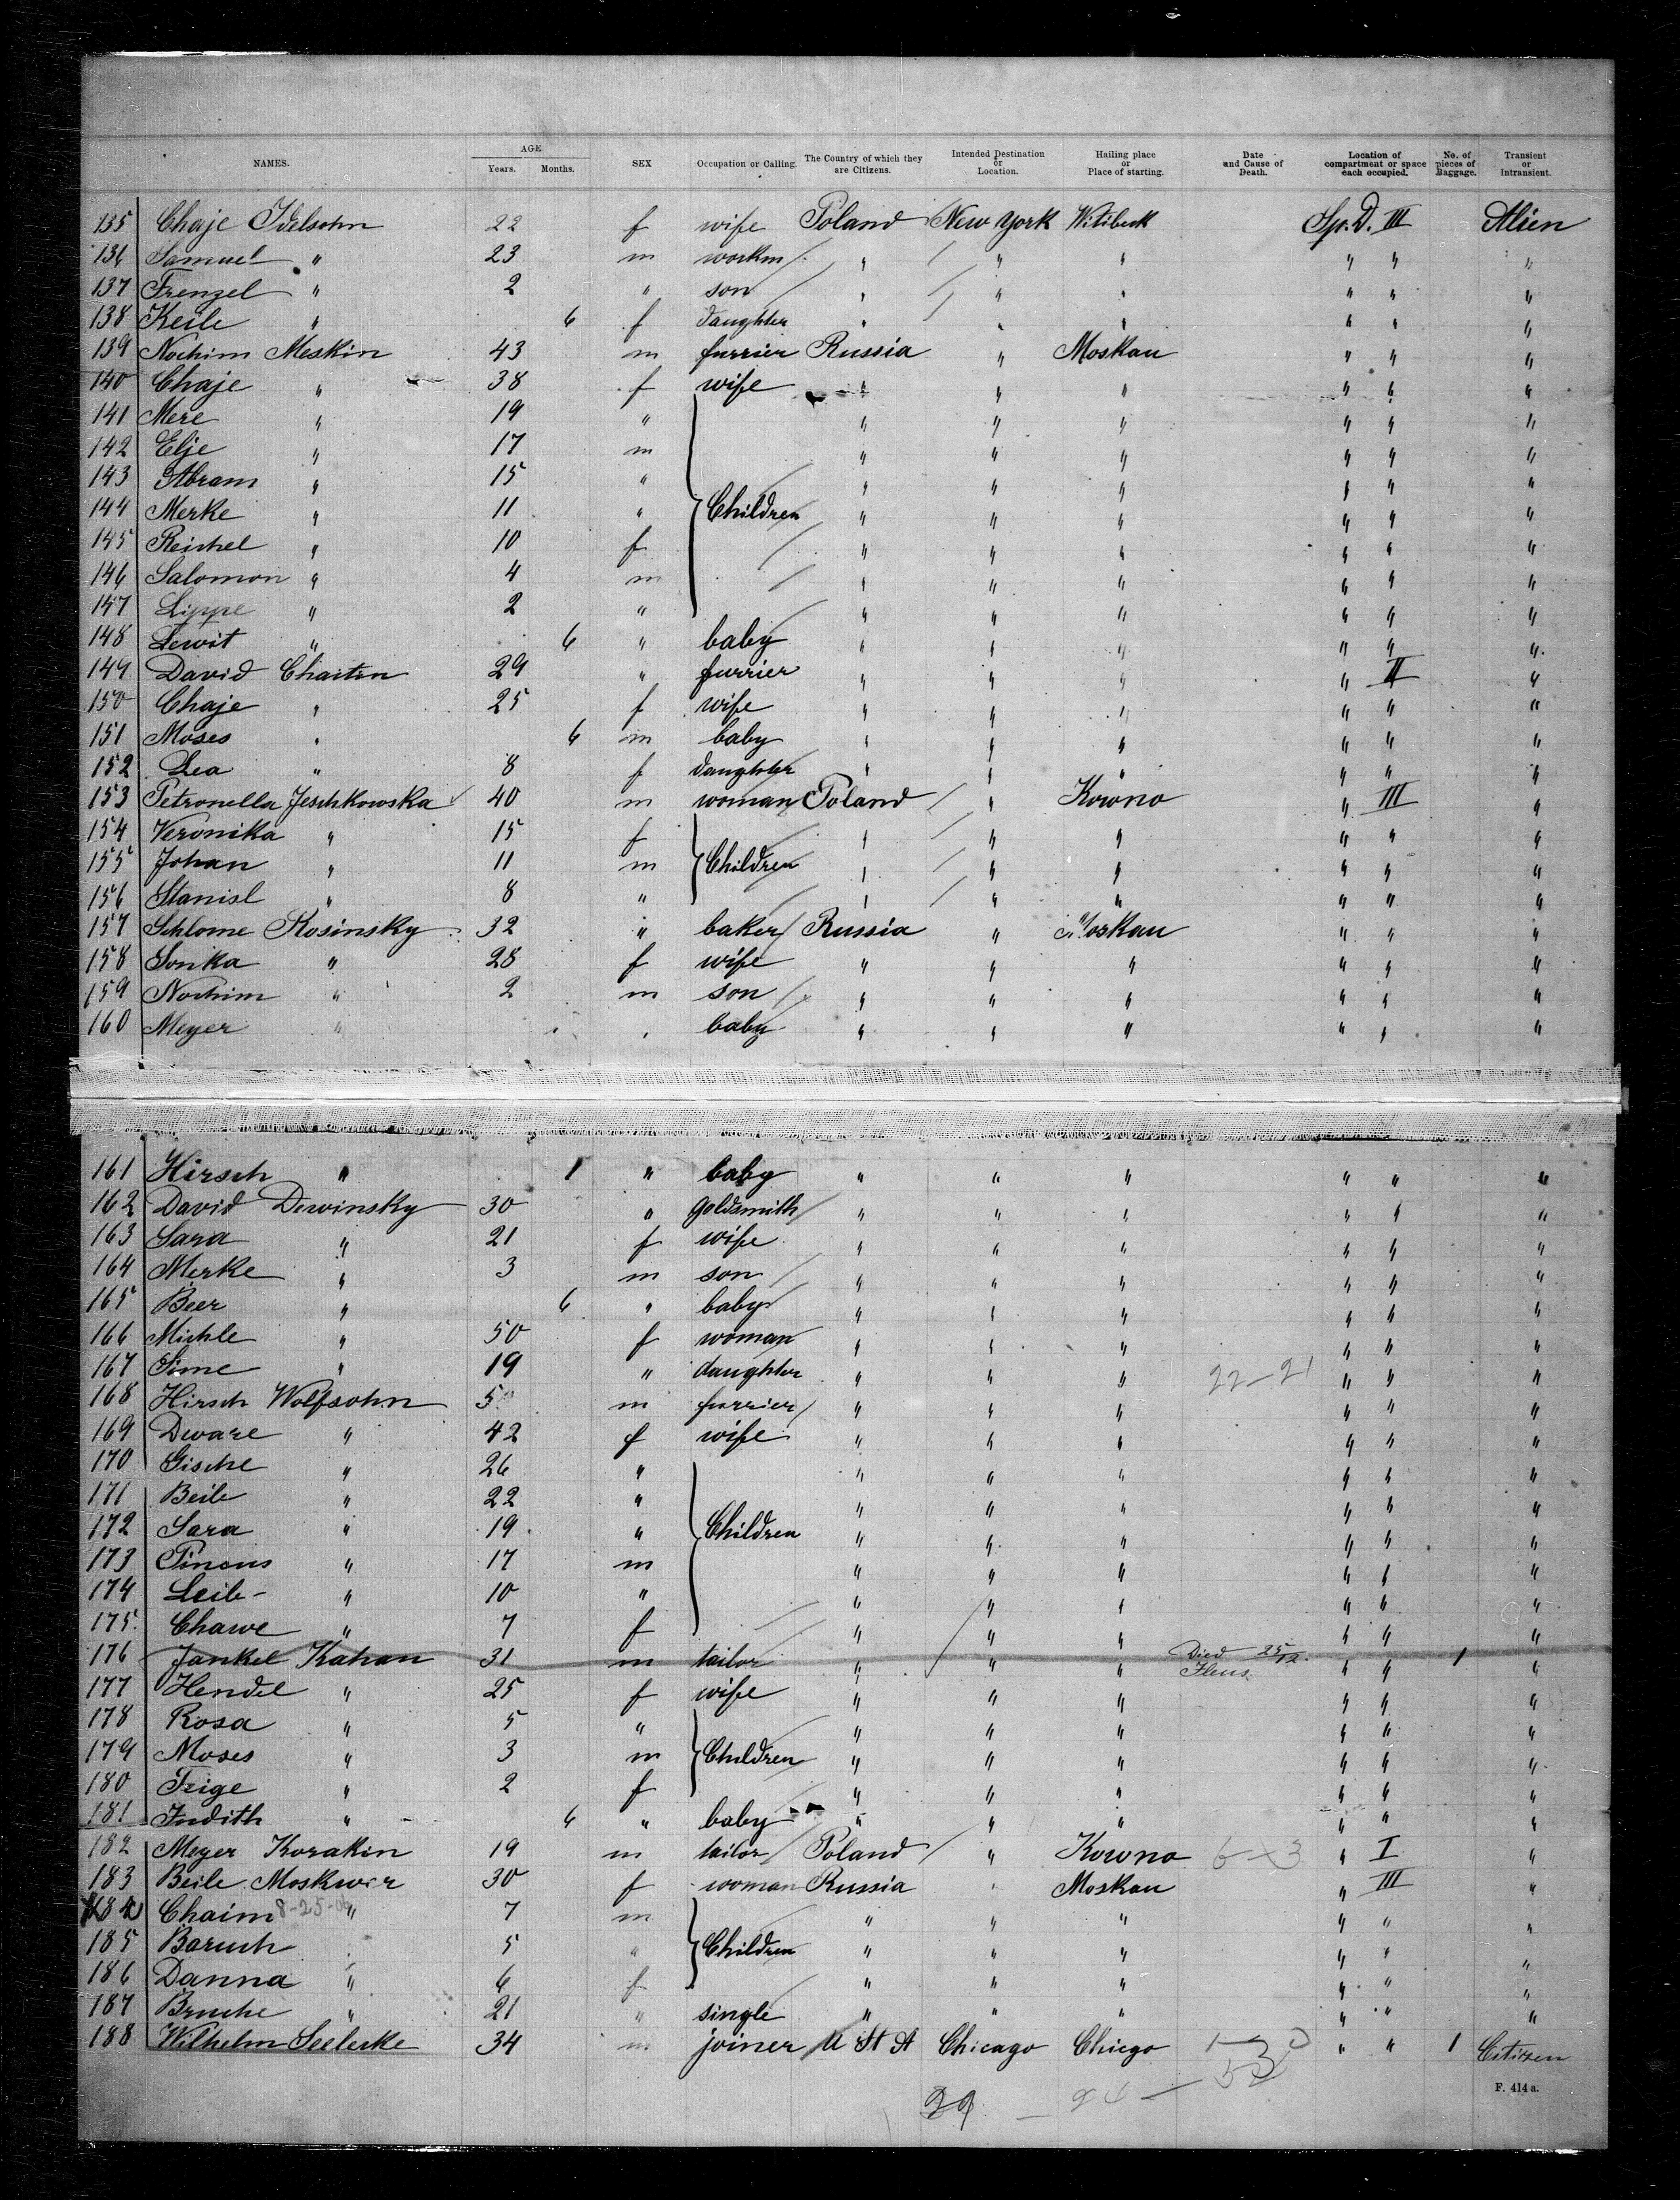 NAMES. AGE Years. Months. SEX Occupation or Calling. The Country of which they are Citizens. Intended Destination or Location. Hailing place or Place of starting. Date and Cause of Death. Location of compartment or space each occupied. No. of pieces of Baggage. Transient or Intransient.
135 Chaje Idelsohn 22 f wife Poland New York Witibeck Sp. D. III Alien
136 Samuel " 23 m workm " " " " " "
137 Frenzel " 2 " son " " " " " "
138 Keile " 6 f daughter " " " " " "
139 Nochim Meskin 43 m furrier Russia " Moskau " " "
140 Chaje " 38 f wife " " " " " "
141 Mere " 19 " " " " " " "
142 Elje " 17 m " " " " " "
143 Abram " 15 " " " " " " "
144 Merke " 11 " Children " " " " " "
145 Reichel " 10 f " " " " " "
146 Salomon " 4 m " " " " " "
147 Lippe " 2 " " " " " " "
148 Lewit " 6 " baby " " " " " "
149 David Chaitin 29 " furrier " " " " II "
150 Chaje " 25 f wife " " " " " "
151 Moses " 6 m baby " " " " " "
152 Lea " 8 f daughter " " " " " "
153 Petronella Jeschkowska 40 m woman Poland " Kowno " III "
154 Veronika " 15 f " " " " " "
155 Johan " 11 m Children " " " " " "
156 Stanisl " 8 " " " " " " "
157 Schlome Rosinsky 32 " baker Russia " Moskau " " "
158 Sonka " 28 f wife " " " " " "
159 Nochim " 2 m son " " " " " "
160 Meyer " " baby " " " " " "
161 Hirsch " 1 " baby " " " " " "
162 David Dewinsky 30 " goldsmith " " " " " "
163 Sara " 21 f wife " " " " " "
164 Merke " 3 m son " " " " " "
165 Beer " 6 " baby " " " " " "
166 Michle " 50 f woman " " " " " "
167 Sime " 19 " daughter " " " 22-21 " " "
168 Hirsch Wolfsohn 5 m furrier " " " " " "
169 Dware " 42 f wife " " " " " "
170 Gische " 26 " " " " " " "
171 Beile " 22 " " " " " " "
172 Sara " 19 " Children " " " " " "
173 Pincus " 17 m " " " " " "
174 Leib " 10 " " " " " " "
175 Chawe " 7 f " " " " " "
176 Jankel Kahan 31 m tailor " " " Died 25/12. " " 1 "
177 Hendel " 25 f wife " " " " " "
178 Rosa " 5 " " " " " " "
179 Moses " 3 m Children " " " " " "
180 Feige " 2 f " " " " " "
181 Judith " 6 " baby " " " " " "
182 Meyer Korakin 19 m tailor Poland " Kowno 6-3 " I "
183 Beile Moskwer 30 f woman Russia " Moskau " III "
184 Chaim 8-25-06 " 7 m " " " " " "
185 Baruch " 5 " Children " " " " " "
186 Danna " 6 f " " " " " "
187 Bruche " 21 " single " " " " " "
188 Wilhelm Seelecke 34 m joiner U St A Chicago Chicgo " " 1 Citizen
F. 414 a.